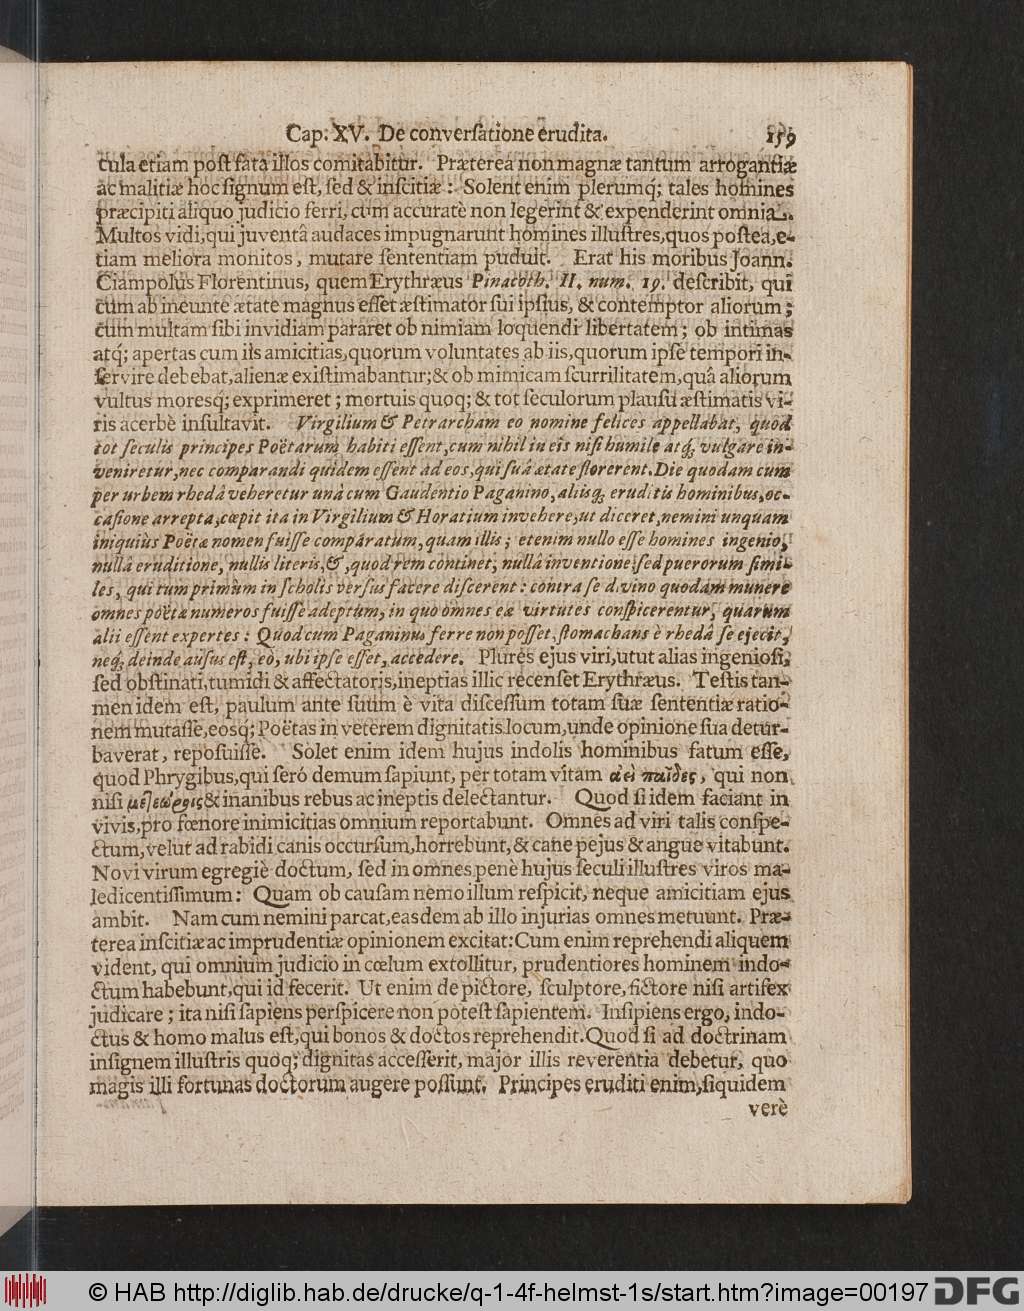 Cap: XV. De conversatione erudita. 159
cula etiam post fata illos comitabitur. Præterea non magnæ tantum arrogantiæ
ac malitiæ hoc signum est, sed & inscitiæ: Solent enim plerumq; tales homines
præcipiti aliquo judicio ferri, cum accuratè non legerint & expenderint omnia.
Multos vidi, qui juventâ audaces impugnarunt homines illustres, quos postea, e-
tiam meliora monitos, mutare sententiam puduit. Erat his moribus Joann.
Ciampolus Florentinus, quem Erythræus Pinacoth. II. num. 19. describit, qui
cum ab ineunte ætate magnus esset æstimator sui ipsius, & contemptor aliorum;
cum multam sibi invidiam pararet ob nimiam loquendi libertatem; ob intimas
atq; apertas cum iis amicitias, quorum voluntates ab iis, quorum ipse tempori in-
servire debebat, alienæ existimabantur; & ob mimicam scurrilitatem, quâ aliorum
vultus moresq; exprimeret; mortuis quoq; & tot seculorum plausu æstimatis vi-
ris acerbè insultavit. Virgilium & Petrarcham eo nomine felices appellabat, quod
tot seculis principes Poëtarum habiti essent, cum nihil in eis nisi humile atq; vulgare in-
veniretur, nec comparandi quidem essent ad eos, qui suâ ætate florerent. Die quodam cum
per urbem rhedâ veheretur unà cum Gaudentio Paganino, aliisq; eruditis hominibus, oc-
casione arrepta, cœpit ita in Virgilium & Horatium invehere, ut diceret, nemini unquam
iniquiùs Poëtæ nomen fuisse comparatum, quam illis; etenim nullo esse homines ingenio,
nullâ eruditione, nullis literis, &, quod rem continet, nullâ inventione; sed puerorum simi-
les, qui tum primùm in scholis versus facere discerent: contra se divino quodam munere
omnes poëtæ numeros fuisse adeptum, in quo omnes eæ virtutes conspicerentur, quarum
alii essent expertes: Quod cum Paganinus ferre non posset, stomachans è rhedâ se ejecit,
neq; deinde ausus est, eò, ubi ipse esset, accedere. Plures ejus viri, utut alias ingeniosi,
sed obstinati, tumidi & affectatoris, ineptias illic recenset Erythræus. Testis tan-
men idem est, paulum ante suum è vita discessum totam suæ sententiæ ratio-
nem mutasse, eosq; Poëtas in veterem dignitatis locum, unde opinione sua detur-
baverat, reposuisse. Solet enim idem hujus indolis hominibus fatum esse,
quod Phrygibus, qui seró demum sapiunt, per totam vitam ἀεὶ παῖδες, qui non
nisi μετεώροις & inanibus rebus ac ineptis delectantur. Quod si idem faciant in
vivis, pro fœnore inimicitias omnium reportabunt. Omnes ad viri talis conspe-
ctum, velut ad rabidi canis occursum, horrebunt, & cane pejus & angue vitabunt.
Novi virum egregiè doctum, sed in omnes penè hujus seculi illustres viros ma-
ledicentissimum: Quam ob causam nemo illum respicit, neque amicitiam ejus
ambit. Nam cum nemini parcat, easdem ab illo injurias omnes metuunt. Præ-
terea inscitiæ ac imprudentiæ opinionem excitat: Cum enim reprehendi aliquem
vident, qui omnium judicio in cœlum extollitur, prudentiores hominem indo-
ctum habebunt, qui id fecerit. Ut enim de pictore, sculptore, fictore nisi artifex
judicare; ita nisi sapiens perspicere non potest sapientem. Insipiens ergo, indo-
ctus & homo malus est, qui bonos & doctos reprehendit. Quod si ad doctrinam
insignem illustris quoq; dignitas accesserit, major illis reverentia debetur, quo
magis illi fortunas doctorum augere possunt. Principes eruditi enim, siquidem
verè
© HAB http://diglib.hab.de/drucke/q-1-4f-helmst-1s/start.htm?image=00197 DFG